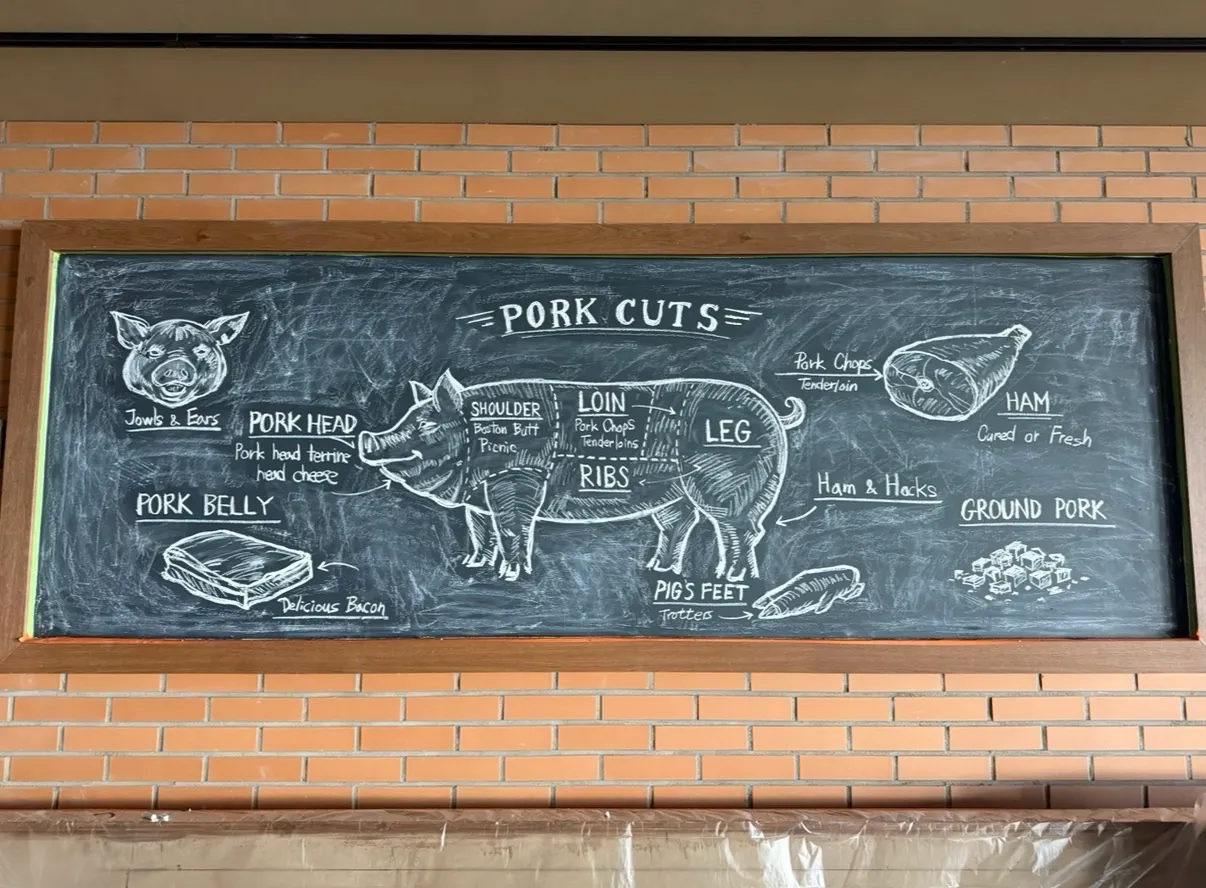 PORK CUTS
Jowls & Ears
PORK HEAD
Pork head terrine
head cheese
PORK BELLY
Delicious Bacon
SHOULDER
Boston Butt
Picnic
LOIN
Pork Chops
Tenderloins
RIBS
LEG
Pork Chops
Tenderloin
HAM
Cured or Fresh
Ham & Hocks
GROUND PORK
PIG'S FEET
Trotters